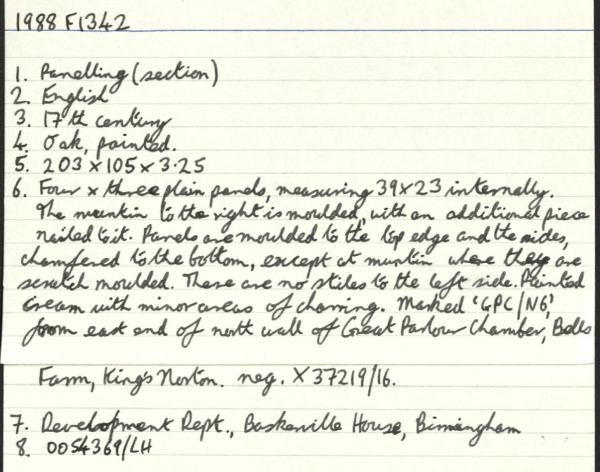 1988 F1342
1. Panelling (section)
2. English
3. 17th century
4. Oak, painted.
5. 203 x 105 x 3.25
6. Four x three plain panels, measuring 39x23 internally.
The muntin to the right is moulded, with an additional piece
nailed to it. Panels are moulded to the top edge and the sides,
chamfered to the bottom, except at muntin where they are
scratch moulded. There are no stiles to the left side. Painted
cream with minor areas of charring. Marked 'GPC/N6',
from east end of north wall of Great Parlour Chamber, Bells
Farm, King's Norton. neg. X37219/16.
7. Development Dept., Baskerville House, Birmingham
8. 0054369/LH